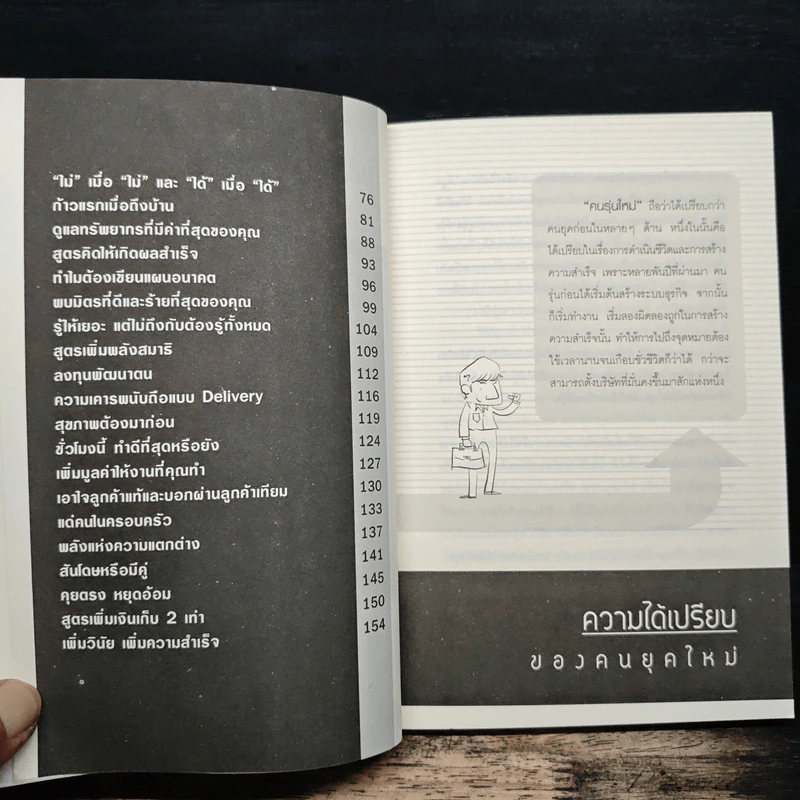 “ไม่” เมื่อ “ไม่” และ “ได้” เมื่อ “ได้” 76
ก้าวแรกเมื่อถึงบ้าน 81
ดูแลทรัพยากรที่มีค่าที่สุดของคุณ 88
สูตรคิดให้เกิดผลสำเร็จ 93
ทำไมต้องเขียนแผนอนาคต 96
พบมิตรที่ดีและร้ายที่สุดของคุณ 99
รู้ให้เยอะ แต่ไม่ถึงกับต้องรู้ทั้งหมด 104
สูตรเพิ่มพลังสมาธิ 109
ลงทุนพัฒนาตน 112
ความเคารพนับถือแบบ Delivery 116
สุขภาพต้องมาก่อน 119
ชั่วโมงนี้ ทำดีที่สุดหรือยัง 124
เพิ่มมูลค่าให้งานที่คุณทำ 127
เอาใจลูกค้าแท้และบอกผ่านลูกค้าเทียม 130
แด่คนในครอบครัว 133
พลังแห่งความแตกต่าง 137
สันโดษหรือมีคู่ 141
คุยตรง หยุดอ้อม 145
สูตรเพิ่มเงินเก็บ 2 เท่า 150
เพิ่มวินัย เพิ่มความสำเร็จ 154
“คนรุ่นใหม่” ถือว่าได้เปรียบกว่า
คนยุคก่อนในหลายๆ ด้าน หนึ่งในนั้นคือ
ได้เปรียบในเรื่องการดำเนินชีวิตและการสร้าง
ความสำเร็จ เพราะหลายพันปีที่ผ่านมา คน
รุ่นก่อนได้เริ่มต้นสร้างระบบธุรกิจ จากนั้น
ก็เริ่มทำงาน เริ่มลองผิดลองถูกในการสร้าง
ความสำเร็จนั้น ทำให้การไปถึงจุดหมายต้อง
ใช้เวลานานจนเกือบชั่วชีวิตก็ว่าได้ กว่าจะ
สามารถตั้งบริษัทที่มั่นคงขึ้นมาสักแห่งหนึ่ง
ความได้เปรียบ
ของคนยุคใหม่